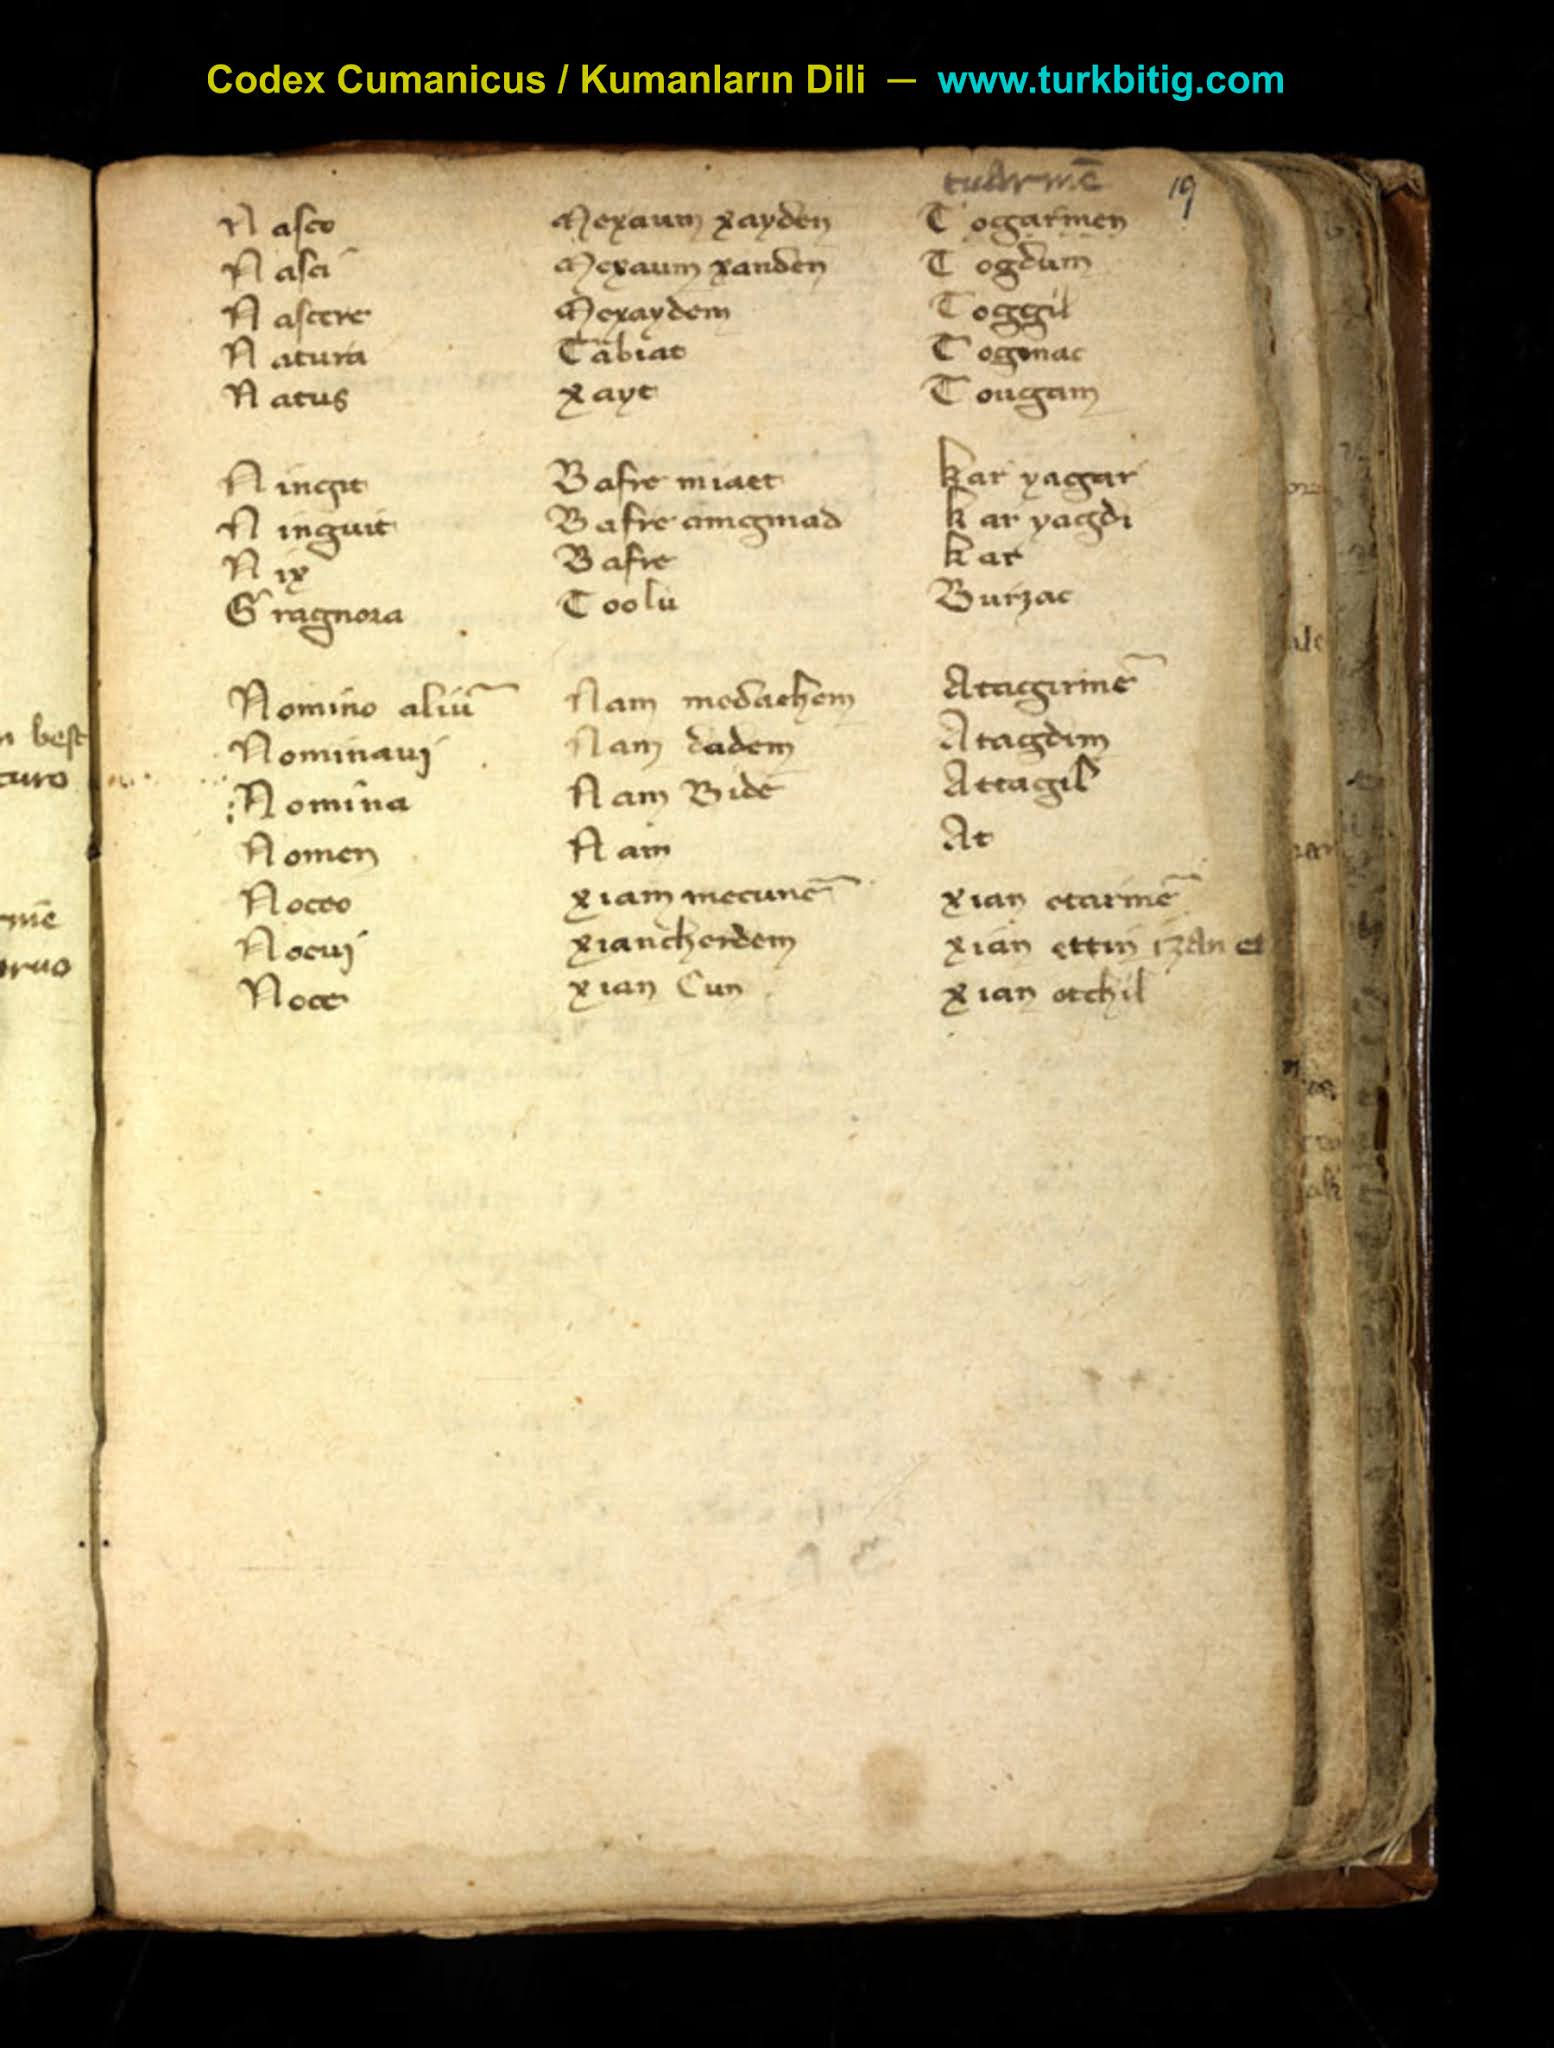 Codex Cumanicus / Kumanların Dili — www.turkbitig.com
tuarmē 19
Nasco Mexaum xayden Togarmen
Nasci Mexaum xanden Togdum
Nascere Mexaydem Toggil
Natura Tabiat Togmac
Natus xayt Tougam
Ningit Bafre miaet kar yagar
Ninguit Bafre amgmad kar yagdi
Nix Bafre kar
Gragnora Toolu Burzac
Nomino aliū Nam medachem Atagirmē
Nominaui Nam dadem Atagdim
Nomina Nam Bidē Attagil
Nomen Nam At
Noceo xiam mecunē xian etarmē
Nocui xiancherdem xian ettin izan et
Noce xian Cun xian etchil
n best
turo
rmē